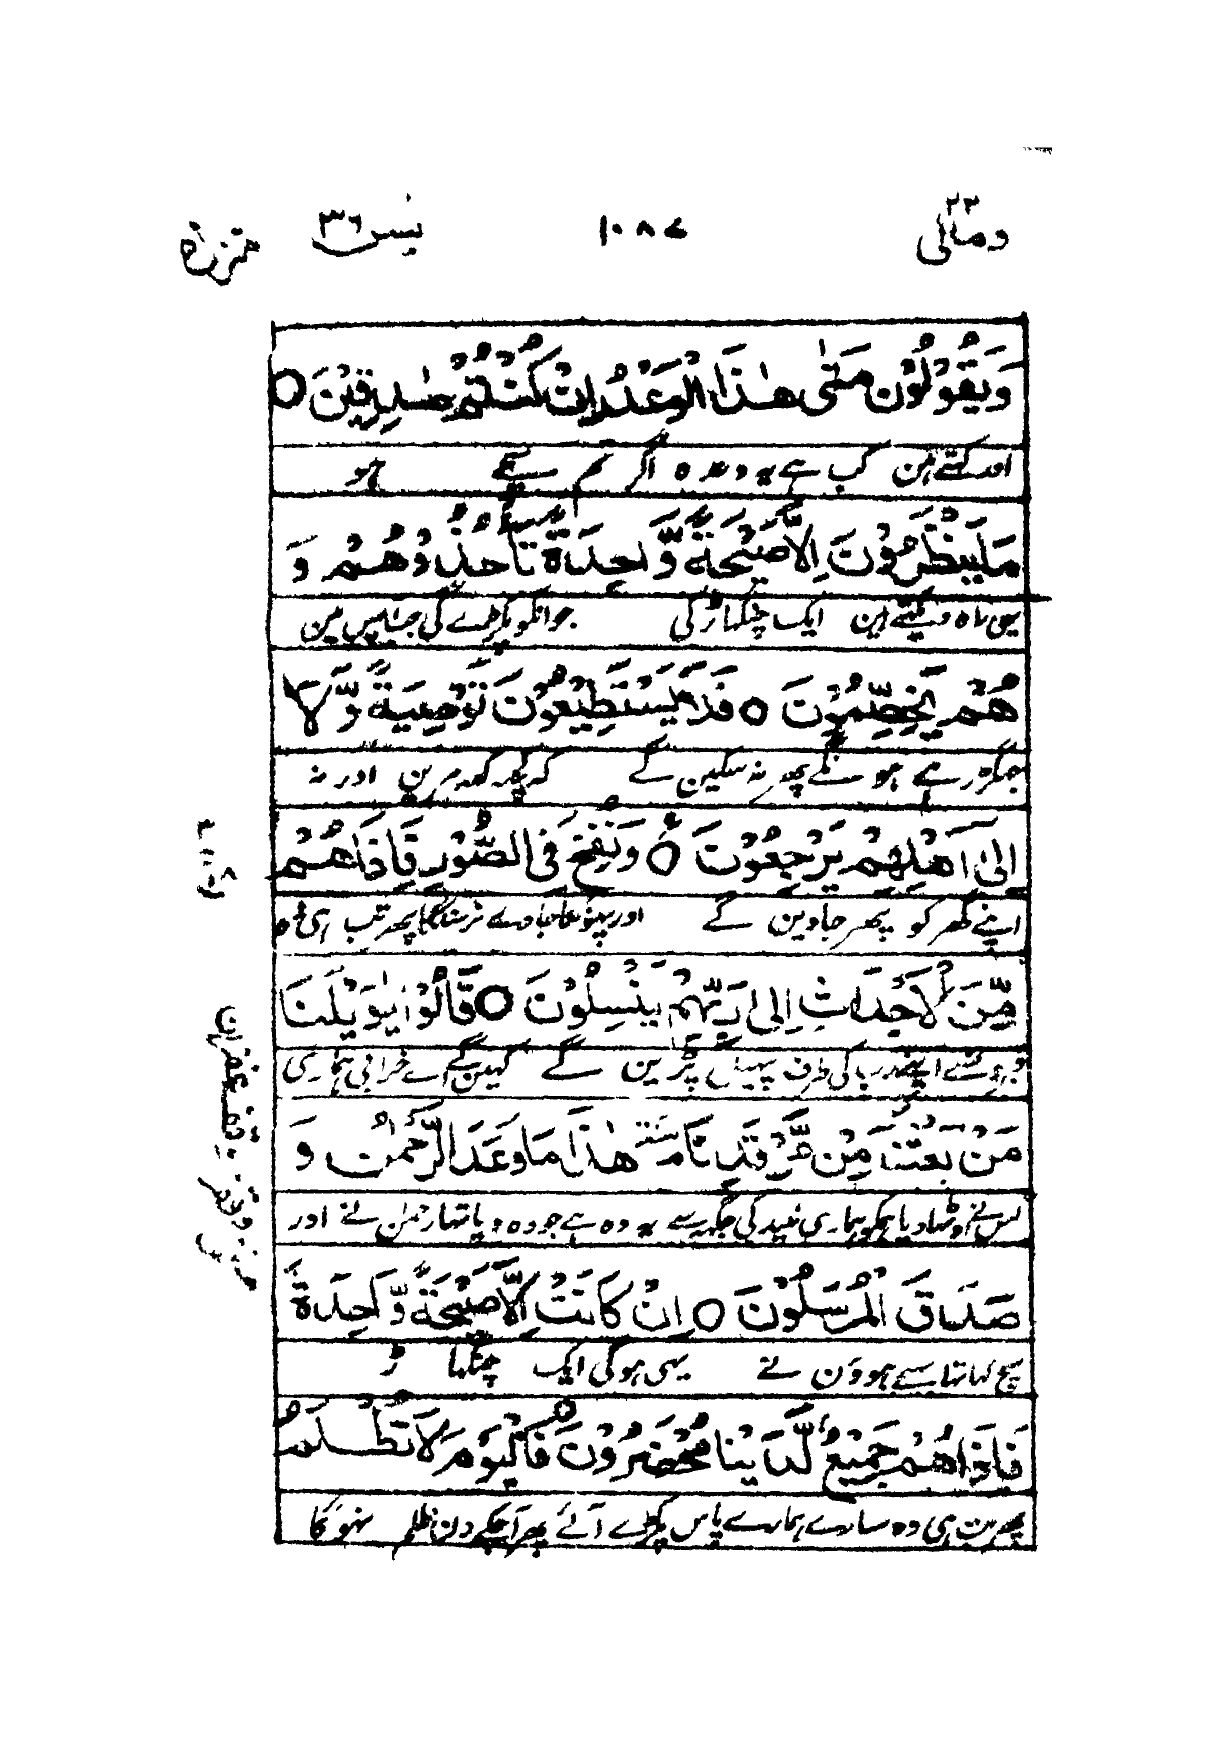 ومالی ٢٣
١٠٨٧
یٰسٓ ٣٦
وَيَقُوْلُوْنَ مَتٰى هٰذَا الْوَعْدُ اِنْ كُنْتُمْ صٰدِقِيْنَ ○
اور کہتے ہین کب ہے یہ وعدہ اگر تم سچے ہو
مَا يَنْظُرُوْنَ اِلَّا صَيْحَةً وَّاحِدَةً تَاْخُذُهُمْ وَ
یہی راہ دیکھتے ہین ایک چنگہاڑ کی جو انکو پکڑے گی جب آپس مین
هُمْ يَخِصِّمُوْنَ ○ فَلَا يَسْتَطِيْعُوْنَ تَوْصِيَةً وَّلَا
جھگڑ رہے ہونگے پھر نہ سکین گے کہ کچھ کہہ مرین اور نہ
اِلٰى اَهْلِهِمْ يَرْجِعُوْنَ ○ وَنُفِخَ فِى الصُّوْرِ فَاِذَا هُمْ
اپنے گھر کو پھر جاوین گے اور پھونکا جاوے نرسنگا پھر تب ہی وہ
مِّنَ الْاَجْدَاثِ اِلٰى رَبِّهِمْ يَنْسِلُوْنَ ○ قَالُوْا يٰوَيْلَنَا
اپنے رب کی طرف پھیل پڑین گے کہین گے اے خرابی ہماری
مَنْ بَعَثَنَا مِنْ مَّرْقَدِنَا هٰذَا مَا وَعَدَ الرَّحْمٰنُ وَ
کس نے اوٹھا دیا ہمکو ہماری نیند کی جگہ سے یہ وہ ہے جو وعدہ دیا تہا رحمٰن نے اور
صَدَقَ الْمُرْسَلُوْنَ ○ اِنْ كَانَتْ اِلَّا صَيْحَةً وَّاحِدَةً
سچ کہا تہا یہی ہوگی ایک چنگہاڑ
فَاِذَا هُمْ جَمِيْعٌ لَّدَيْنَا مُحْضَرُوْنَ ○ فَالْيَوْمَ لَا تُظْلَمُ
پھر تب ہی وہ سارے ہمارے پاس پکڑے آئے پھر آجکے دن ظلم نہوگا